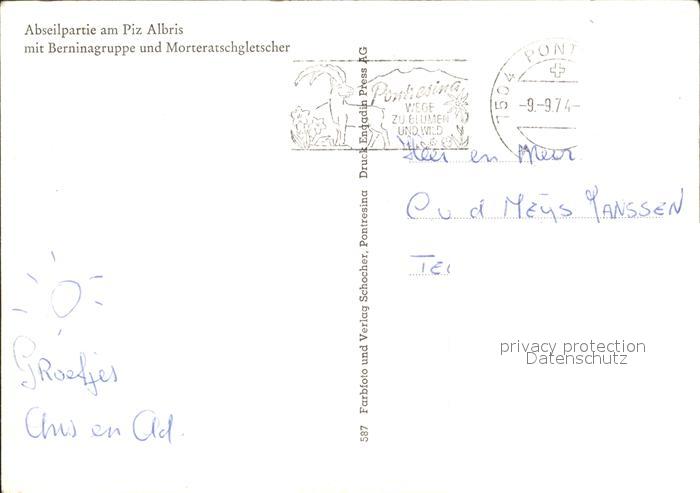 Abseilpartie am Piz Albris
mit Berninagruppe und Morteratschgletscher
Pontresina
WEGE
ZU BLUMEN
UND WILD
1504 PONT
-9.-9.74-
Heer en Mevr.
C v d MEYS JANSSEN
TEL
privacy protection
Datenschutz
Groetjes
Chris en Ad.
587 Farbfoto und Verlag Schocher, Pontresina Druck Engadin Press AG